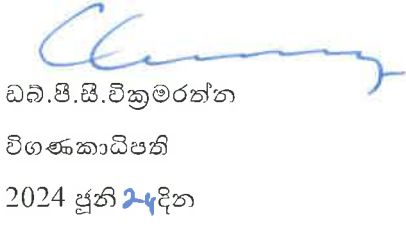 ඩබ්.පී.සී.වික්‍රමරත්න
විගණකාධිපති
2024 ජූනි 24 දින